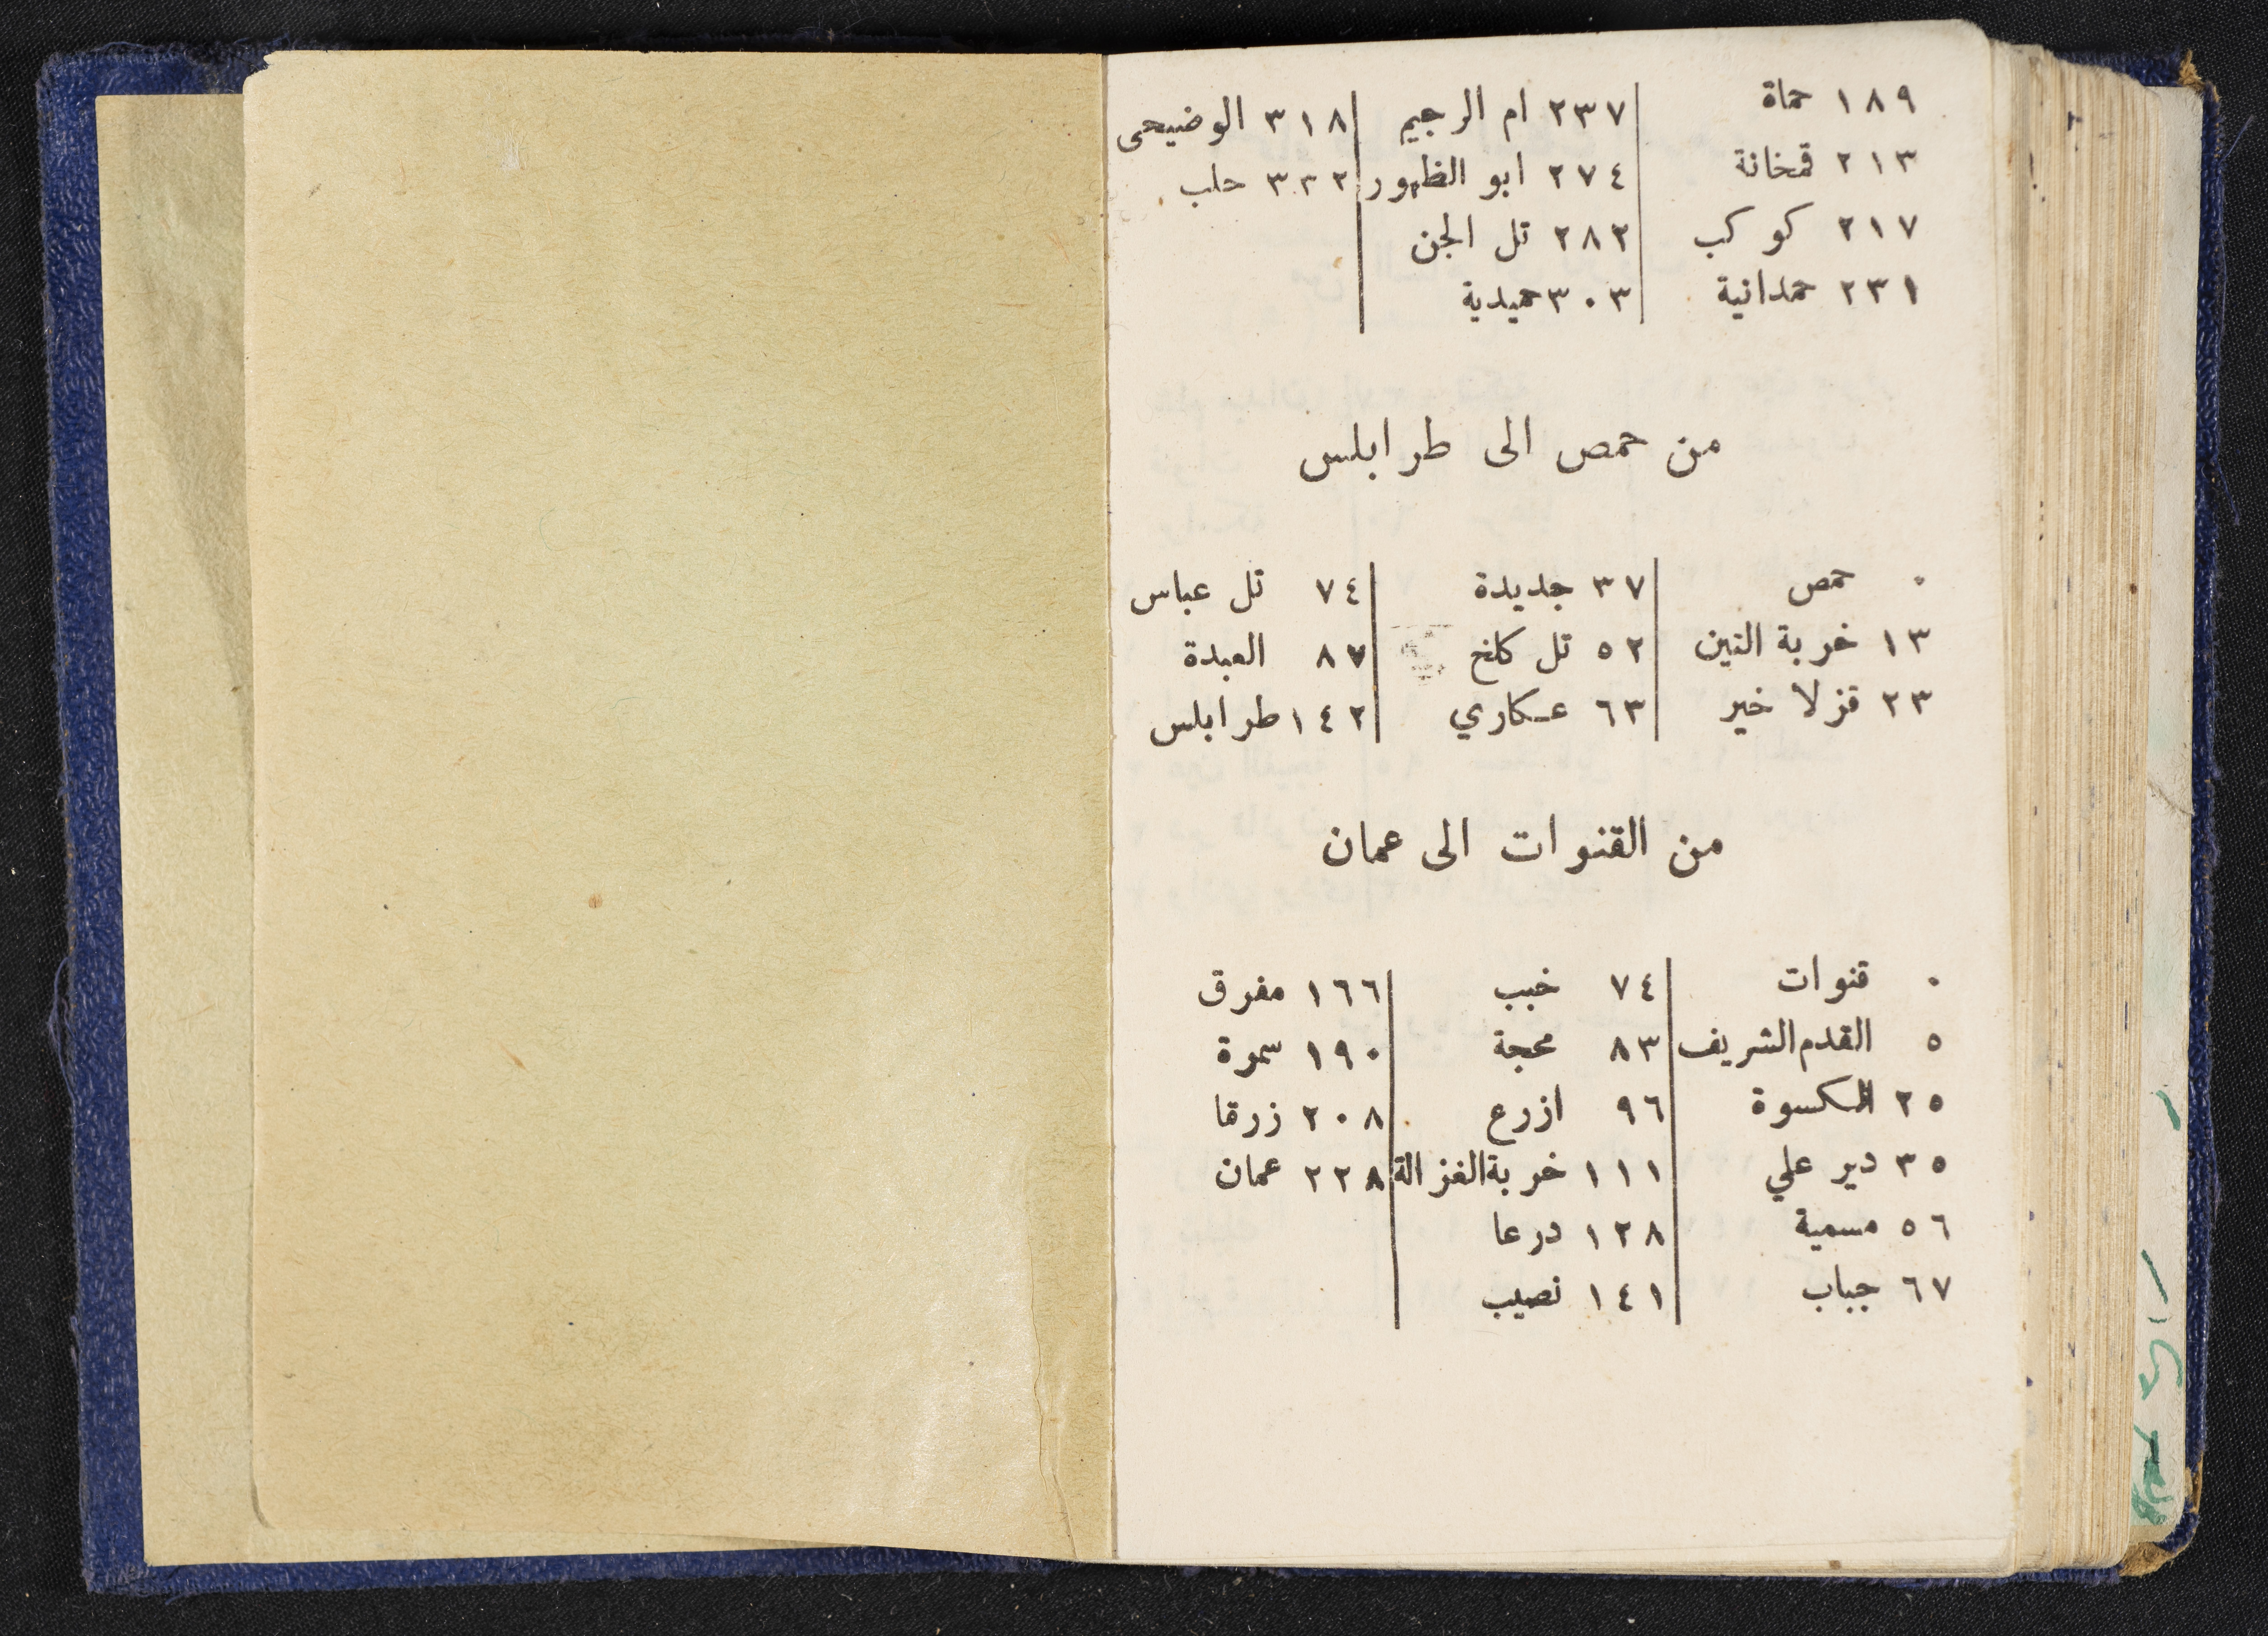 ١٨٩ حماة ٢٣٧ ام الرجيم ٣١٨ الوضيحى
٢١٣ قمخانة ٢٧٤ ابو الظهور ٣٣٢ حلب
٢١٧ كوكب ٢٨٢ تل الجن
٢٣١ حمدانية ٣٠٣ حميدية
من حمص الى طرابلس
٠ حمص ٣٧ جديدة ٧٤ تل عباس
١٣ خربة التين ٥٢ تل كلخ ٨٧ العبدة
٢٣ قزلا خير ٦٣ عكاري ١٤٢ طرابلس
من القنوات الى عمان
٠ قنوات ٧٤ خبب ١٦٦ مفرق
٥ القدم الشريف ٨٣ محجة ١٩٠ سمرة
٢٥ الكسوة ٩٦ ازرع ٢٠٨ زرقا
٣٥ دير علي ١١١ خربة الغزالة ٢٢٨ عمان
٥٦ مسمية ١٢٨ درعا
٦٧ جباب ١٤١ نصيب